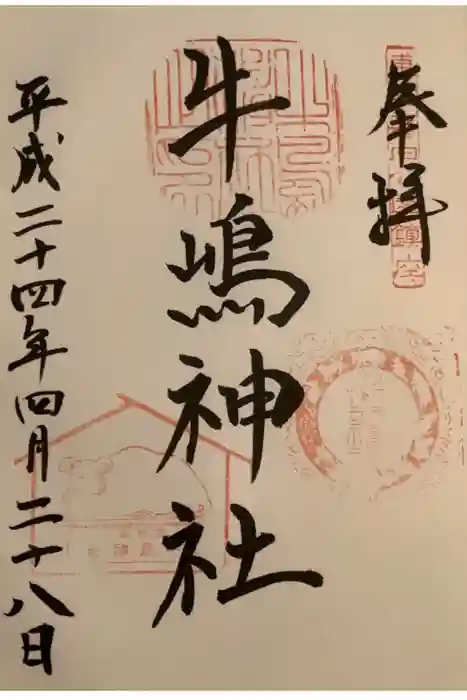 奉拝
牛嶋神社
平成二十四年四月二十八日